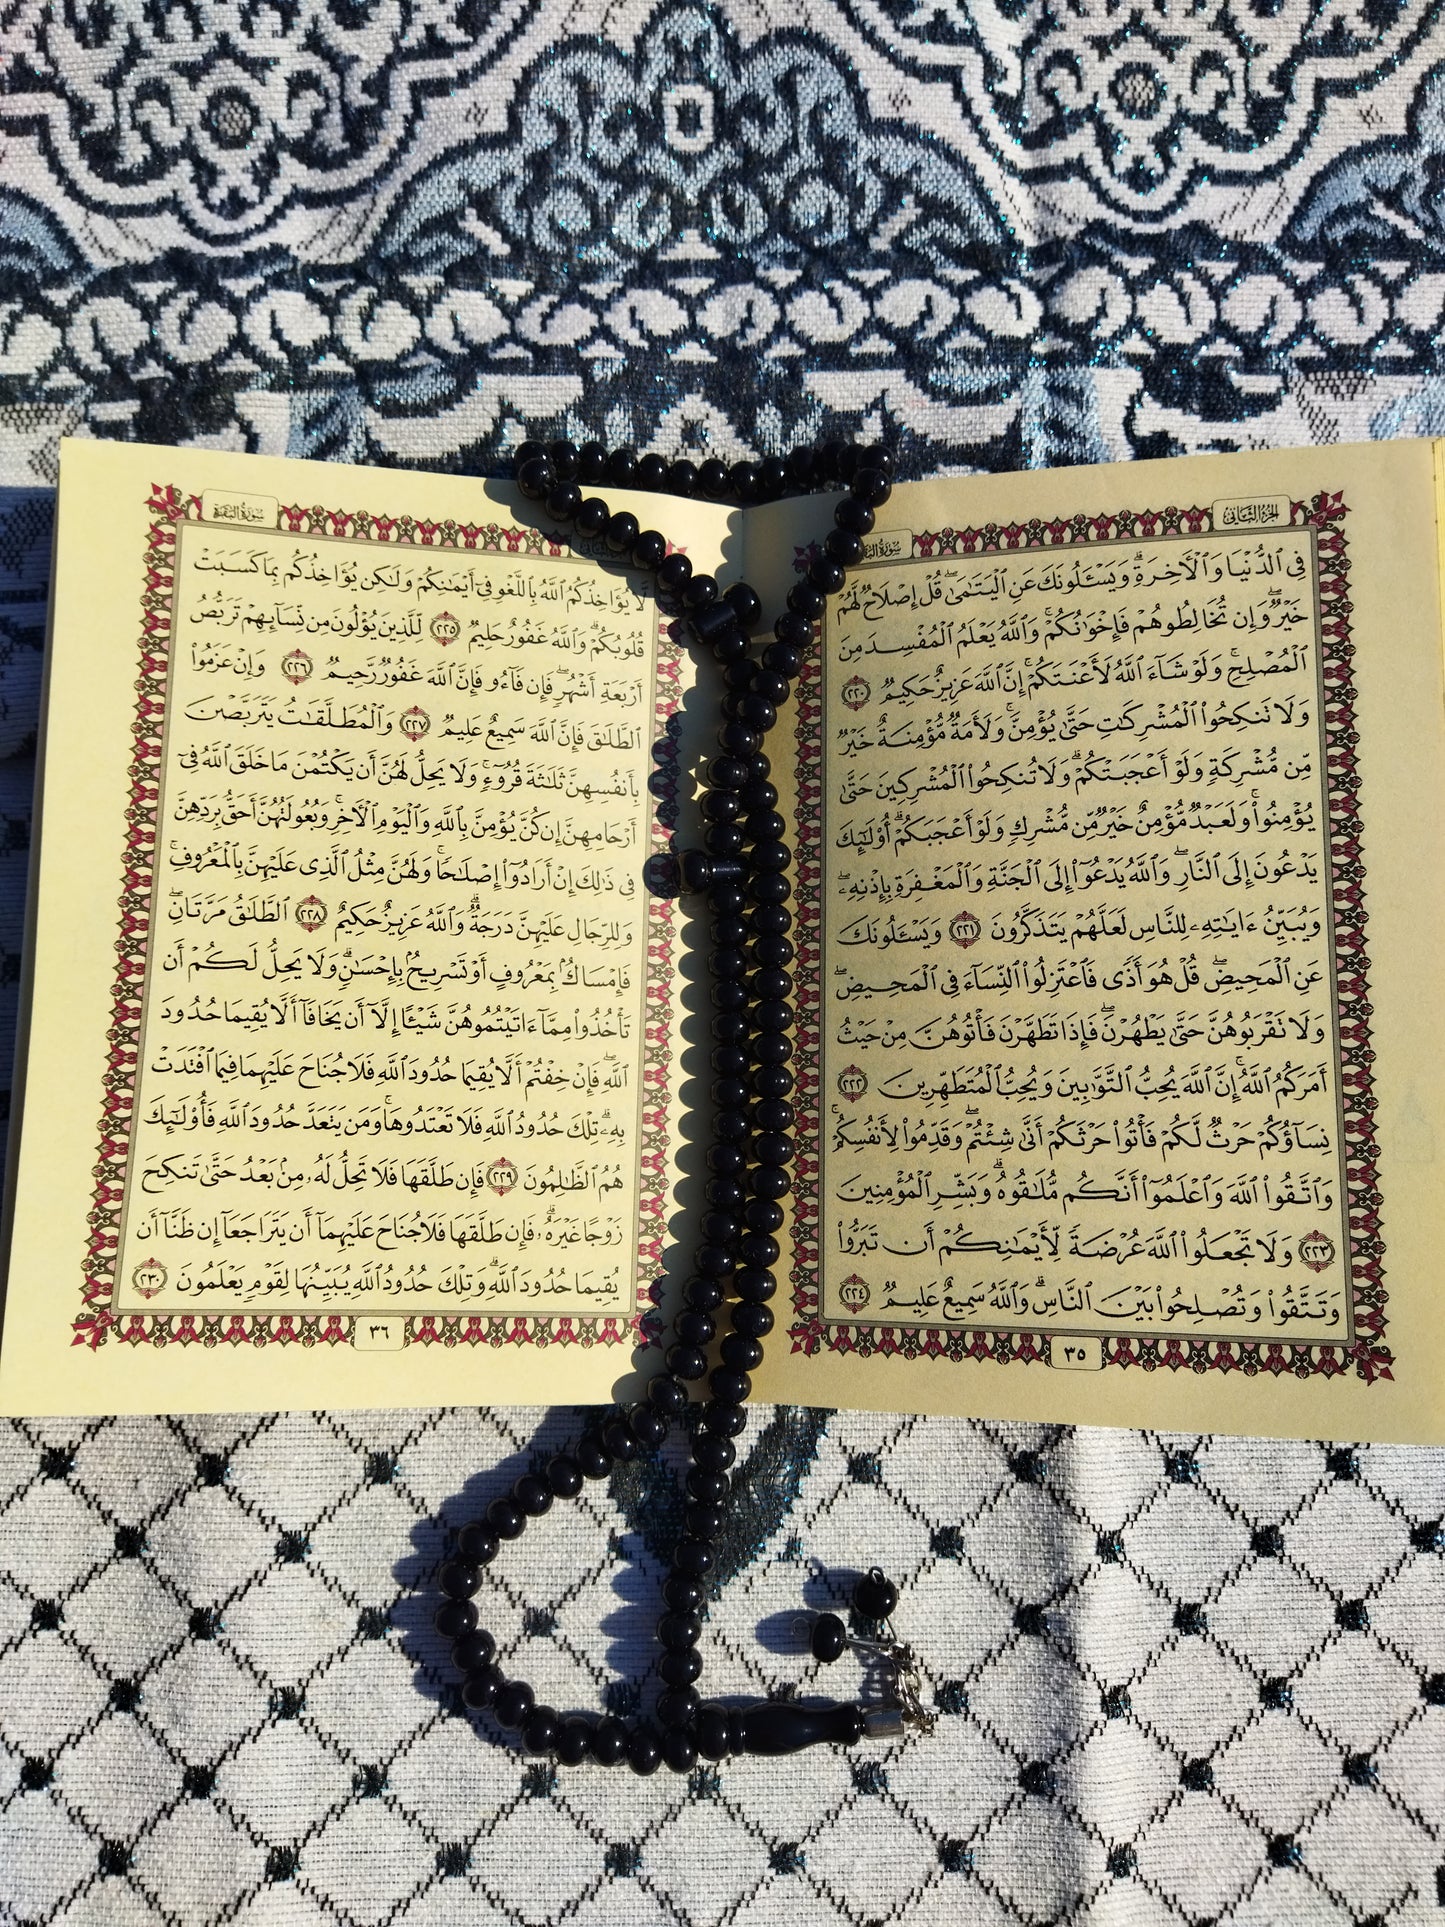 الجزء الثاني
سورة البقرة
فِي ٱلدُّنۡيَا وَٱلۡأٓخِرَةِۗ وَيَسۡـَٔلُونَكَ عَنِ ٱلۡيَتَٰمَىٰۖ قُلۡ إِصۡلَاحٞ لَّهُمۡ
خَيۡرٞۖ وَإِن تُخَالِطُوهُمۡ فَإِخۡوَٰنُكُمۡۚ وَٱللَّهُ يَعۡلَمُ ٱلۡمُفۡسِدَ مِنَ
ٱلۡمُصۡلِحِۚ وَلَوۡ شَآءَ ٱللَّهُ لَأَعۡنَتَكُمۡۚ إِنَّ ٱللَّهَ عَزِيزٌ حَكِيمٞ ٢٢٠
وَلَا تَنكِحُواْ ٱلۡمُشۡرِكَٰتِ حَتَّىٰ يُؤۡمِنَّۚ وَلَأَمَةٞ مُّؤۡمِنَةٌ خَيۡرٞ
مِّن مُّشۡرِكَةٖ وَلَوۡ أَعۡجَبَتۡكُمۡۗ وَلَا تُنكِحُواْ ٱلۡمُشۡرِكِينَ حَتَّىٰ
يُؤۡمِنُواْۚ وَلَعَبۡدٞ مُّؤۡمِنٌ خَيۡرٞ مِّن مُّشۡرِكٖ وَلَوۡ أَعۡجَبَكُمۡۗ أُوْلَٰٓئِكَ
يَدۡعُونَ إِلَى ٱلنَّارِۖ وَٱللَّهُ يَدۡعُوٓاْ إِلَى ٱلۡجَنَّةِ وَٱلۡمَغۡفِرَةِ بِإِذۡنِهِۦۖ
وَيُبَيِّنُ ءَايَٰتِهِۦ لِلنَّاسِ لَعَلَّهُمۡ يَتَذَكَّرُونَ ٢٢١ وَيَسۡـَٔلُونَكَ
عَنِ ٱلۡمَحِيضِۖ قُلۡ هُوَ أَذٗى فَٱعۡتَزِلُواْ ٱلنِّسَآءَ فِي ٱلۡمَحِيضِۖ
وَلَا تَقۡرَبُوهُنَّ حَتَّىٰ يَطۡهُرۡنَۖ فَإِذَا تَطَهَّرۡنَ فَأۡتُوهُنَّ مِنۡ حَيۡثُ
أَمَرَكُمُ ٱللَّهُۚ إِنَّ ٱللَّهَ يُحِبُّ ٱلتَّوَّٰبِينَ وَيُحِبُّ ٱلۡمُتَطَهِّرِينَ ٢٢٢
نِسَآؤُكُمۡ حَرۡثٞ لَّكُمۡ فَأۡتُواْ حَرۡثَكُمۡ أَنَّىٰ شِئۡتُمۡۖ وَقَدِّمُواْ لِأَنفُسِكُمۡۚ
وَٱتَّقُواْ ٱللَّهَ وَٱعۡلَمُوٓاْ أَنَّكُم مُّلَٰقُوهُۗ وَبَشِّرِ ٱلۡمُؤۡمِنِينَ
٢٢٣ وَلَا تَجۡعَلُواْ ٱللَّهَ عُرۡضَةٗ لِّأَيۡمَٰنِكُمۡ أَن تَبَرُّواْ
وَتَتَّقُواْ وَتُصۡلِحُواْ بَيۡنَ ٱلنَّاسِۚ وَٱللَّهُ سَمِيعٌ عَلِيمٞ ٢٢٤
٣٥
سورة البقرة
لَّا يُؤَاخِذُكُمُ ٱللَّهُ بِٱللَّغۡوِ فِيٓ أَيۡمَٰنِكُمۡ وَلَٰكِن يُؤَاخِذُكُم بِمَا كَسَبَتۡ
قُلُوبُكُمۡۗ وَٱللَّهُ غَفُورٌ حَلِيمٞ ٢٢٥ لِّلَّذِينَ يُؤۡلُونَ مِن نِّسَآئِهِمۡ تَرَبُّصُ
أَرۡبَعَةِ أَشۡهُرٖۖ فَإِن فَآءُو فَإِنَّ ٱللَّهَ غَفُورٞ رَّحِيمٞ ٢٢٦ وَإِنۡ عَزَمُواْ
ٱلطَّلَٰقَ فَإِنَّ ٱللَّهَ سَمِيعٌ عَلِيمٞ ٢٢٧ وَٱلۡمُطَلَّقَٰتُ يَتَرَبَّصۡنَ
بِأَنفُسِهِنَّ ثَلَٰثَةَ قُرُوٓءٖۚ وَلَا يَحِلُّ لَهُنَّ أَن يَكۡتُمۡنَ مَا خَلَقَ ٱللَّهُ فِيٓ
أَرۡحَامِهِنَّ إِن كُنَّ يُؤۡمِنَّ بِٱللَّهِ وَٱلۡيَوۡمِ ٱلۡأٓخِرِۚ وَبُعُولَتُهُنَّ أَحَقُّ بِرَدِّهِنَّ
فِي ذَٰلِكَ إِنۡ أَرَادُوٓاْ إِصۡلَٰحٗاۚ وَلَهُنَّ مِثۡلُ ٱلَّذِي عَلَيۡهِنَّ بِٱلۡمَعۡرُوفِۚ
وَلِلرِّجَالِ عَلَيۡهِنَّ دَرَجَةٞۗ وَٱللَّهُ عَزِيزٌ حَكِيمٌ ٢٢٨ ٱلطَّلَٰقُ مَرَّتَانِۖ
فَإِمۡسَاكُۢ بِمَعۡرُوفٍ أَوۡ تَسۡرِيحُۢ بِإِحۡسَٰنٖۗ وَلَا يَحِلُّ لَكُمۡ أَن
تَأۡخُذُواْ مِمَّآ ءَاتَيۡتُمُوهُنَّ شَيۡـًٔا إِلَّآ أَن يَخَافَآ أَلَّا يُقِيمَا حُدُودَ
ٱللَّهِۖ فَإِنۡ خِفۡتُمۡ أَلَّا يُقِيمَا حُدُودَ ٱللَّهِ فَلَا جُنَاحَ عَلَيۡهِمَا فِيمَا ٱفۡتَدَتۡ
بِهِۦۗ تِلۡكَ حُدُودُ ٱللَّهِ فَلَا تَعۡتَدُوهَاۚ وَمَن يَتَعَدَّ حُدُودَ ٱللَّهِ فَأُوْلَٰٓئِكَ
هُمُ ٱلظَّٰلِمُونَ ٢٢٩ فَإِن طَلَّقَهَا فَلَا تَحِلُّ لَهُۥ مِنۢ بَعۡدُ حَتَّىٰ تَنكِحَ
زَوۡجًا غَيۡرَهُۥۗ فَإِن طَلَّقَهَا فَلَا جُنَاحَ عَلَيۡهِمَآ أَن يَتَرَاجَعَآ إِن ظَنَّآ أَن
يُقِيمَا حُدُودَ ٱللَّهِۗ وَتِلۡكَ حُدُودُ ٱللَّهِ يُبَيِّنُهَا لِقَوۡمٖ يَعۡلَمُونَ ٢٣٠
٣٦